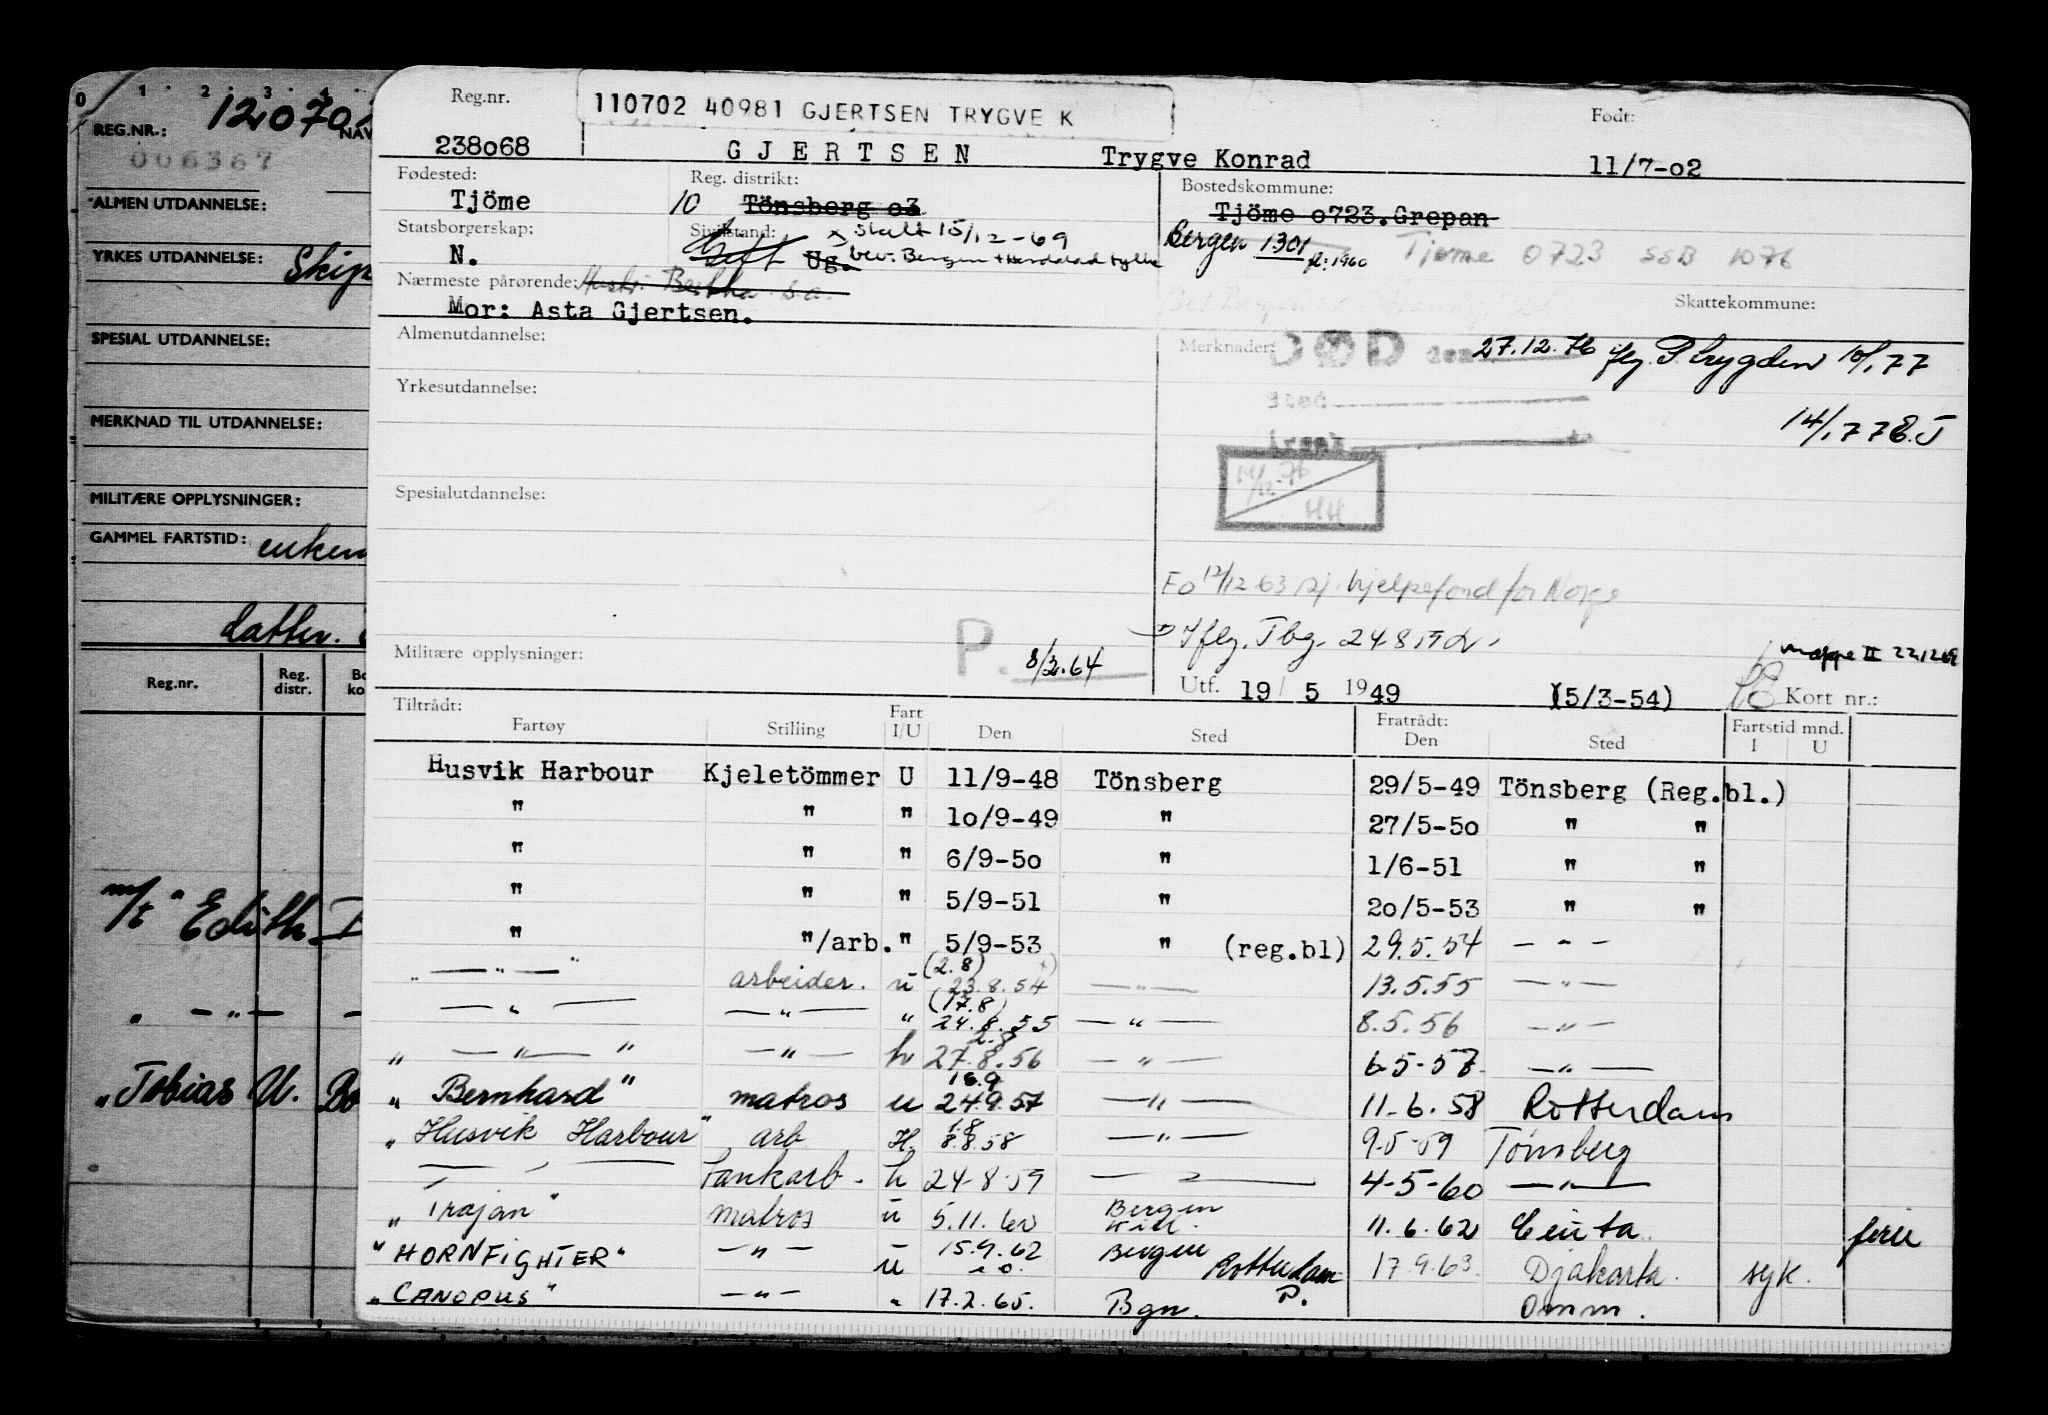 0 1 2 3 4
REG.NR.: 12.070 NAV
006367
ALMEN UTDANNELSE:
YRKES UTDANNELSE: Skip
SPESIAL UTDANNELSE:
MERKNAD TIL UTDANNELSE:
MILITÆRE OPPLYSNINGER:
GAMMEL FARTSTID: enken
datter.
Reg.nr. Reg. distr. Bo ko
m/t "Edith
" — " —
"Tobias U. Bo
Reg.nr. 110702 40981 GJERTSEN TRYGVE K Født:
238o68 GJERTSEN Trygve Konrad 11/7-o2
Fødested: Reg. distrikt: Bostedskommune:
Tjöme 10 Tönsberg o3 Tjöme o723.Grepan
Statsborgerskap: Sivilstand: x skilt 15/12-69 Bergen 1301 fl. 1960 Tjøme 0723 SSB 1076
N. Gift Ug. bev. Bergen + Hordaland fylke
Nærmeste pårørende: Hustr. Bertha s.a. Skattekommune:
Mor: Asta Gjertsen.
Almenutdannelse: Merknader: DØD den 27.12.76 iflg. P. trygden 10/1 77
Yrkesutdannelse: Sted
14/1 77 E.J
årsak
14/12-76 HH
Spesialutdannelse:
Fo 12/12-63 sj. hjelpefond for Norge
x) Iflg. Tbg. 24 8
Militære opplysninger: P. 8/2.64 Mappe II 221269
Utf. 19/ 5 1949 (5/3-54) Kort nr.:
Tiltrådt: Fart Fratrådt: Fartstid mnd.
Fartøy Stilling I/U Den Sted Den Sted I U
Husvik Harbour Kjeletömmer U 11/9-48 Tönsberg 29/5-49 Tönsberg (Reg.bl.)
" " " 1o/9-49 " 27/5-5o " "
" " " 6/9-5o " 1/6-51 " "
" " " 5/9-51 " 2o/5-53 " "
" "/arb. " 5/9-53 " (reg.bl) 29.5.54 — " —
" — " — " arbeider. u (2.8) 23.8.54 x) — " — 13.5.55 — " —
— " — — " — " (17.8) 24.8.55 — " — 8.5.56 — " —
" — " — " — " — u 2.8 27.8.56 — " — 6-5-57 — " —
" Bernhard" matros u 16.9 24.9.57 — " — 11.6.58 Rotterdam
" Husvik Harbour" arb U. 1.8 8.8.58 — " — 9-5-59 Tönsberg
— " — tankarb. u 24-8-59 — " — 4-5-60 — " —
" Trajan" matros u 5.11.60 Bergen 11.6.62 Ceuta ferie
" HORNFIGHTER" — " — u 15.9.62 Bergen Rotterdam 17.9.63 Djakarta. syk.
" CANOPUS" — " — " 17.2.65. Bgn. P. Omm.